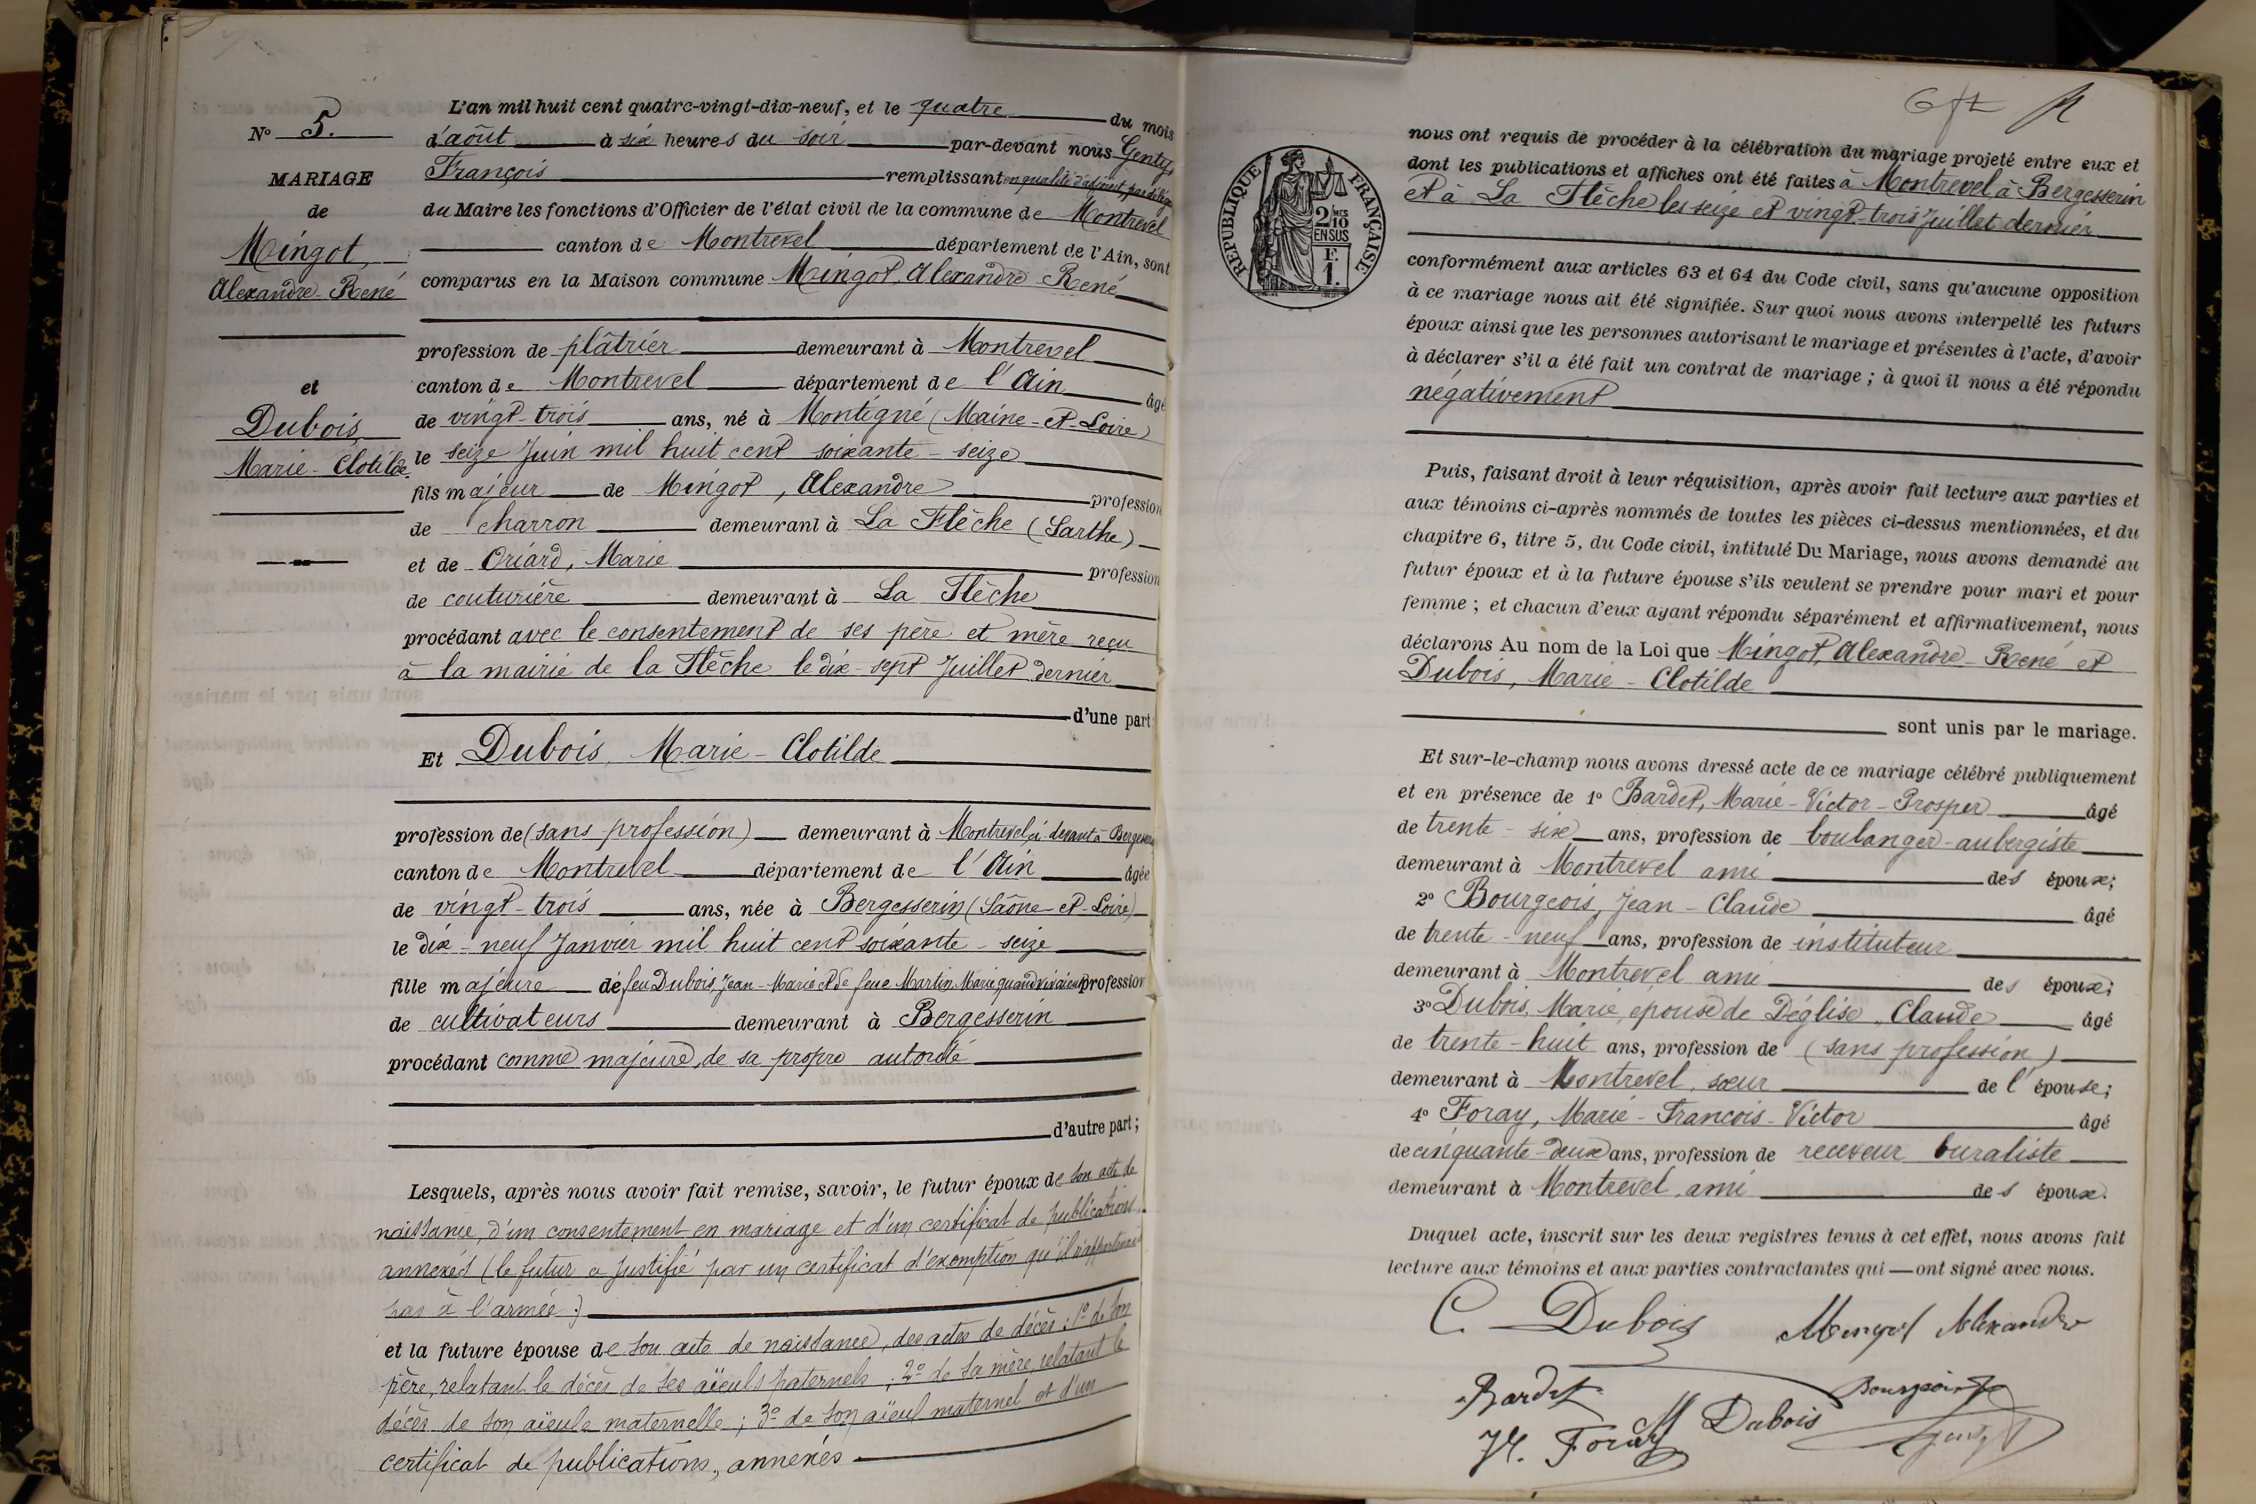 N° 5.
MARIAGE
de
Mingot,
Alexandre-René
et
Dubois,
Marie-Clotilde
L'an mil huit cent quatre-vingt-dix-neuf, et le quatre du mois
d'août à six heures du soir par-devant nous Genty,
François remplissant en qualité d'adjoint, par délég.
du Maire les fonctions d'Officier de l'état civil de la commune de Montrevel
canton de Montrevel département de l'Ain, sont
comparus en la Maison commune Mingot, Alexandre-René
profession de plâtrier demeurant à Montrevel
canton de Montrevel département de l'Ain âgé
de vingt-trois ans, né à Montigné (Maine-et-Loire)
le seize Juin mil huit cent soixante-seize
fils majeur de Mingot, Alexandre profession
de charron demeurant à La Flèche (Sarthe)
et de Oriard, Marie profession
de couturière demeurant à La Flèche
procédant avec le consentement de ses père et mère reçu
à la mairie de la Flèche le dix-sept Juillet dernier
d'une part
Et Dubois, Marie-Clotilde
profession de (sans profession) demeurant à Montrevel, ci-devant à Bergesserin
canton de Montrevel département de l'Ain âgée
de vingt-trois ans, née à Bergesserin (Saône-et-Loire)
le dix-neuf Janvier mil huit cent soixante-seize
fille majeure de feu Dubois, Jean-Marie et de feue Martin, Marie quand vivaient profession
de cultivateurs demeurant à Bergesserin
procédant comme majeure, de sa propre autorité
d'autre part;
Lesquels, après nous avoir fait remise, savoir, le futur époux de son acte de
naissance, d'un consentement en mariage et d'un certificat de publications,
annexés (le futur a justifié par un certificat d'exemption qu'il n'appartenait
pas à l'armée.)
et la future épouse de son acte de naissance, des actes de décès: 1° de son
père, relatant le décès de ses aïeuls paternels; 2° de sa mère, relatant le
décès de son aïeule maternelle; 3° de son aïeul maternel et d'un
certificat de publications, annexés
RÉPUBLIQUE FRANÇAISE
2/10 MES
EN SUS
F.
1.
nous ont requis de procéder à la célébration du mariage projeté entre eux et
dont les publications et affiches ont été faites à Montrevel à Bergesserin
et à La Flèche les seize et vingt-trois Juillet dernier
conformément aux articles 63 et 64 du Code civil, sans qu'aucune opposition
à ce mariage nous ait été signifiée. Sur quoi nous avons interpellé les futurs
époux ainsi que les personnes autorisant le mariage et présentes à l'acte, d'avoir
à déclarer s'il a été fait un contrat de mariage; à quoi il nous a été répondu
négativement
Puis, faisant droit à leur réquisition, après avoir fait lecture aux parties et
aux témoins ci-après nommés de toutes les pièces ci-dessus mentionnées, et du
chapitre 6, titre 5, du Code civil, intitulé Du Mariage, nous avons demandé au
futur époux et à la future épouse s'ils veulent se prendre pour mari et pour
femme; et chacun d'eux ayant répondu séparément et affirmativement, nous
déclarons Au nom de la Loi que Mingot, Alexandre-René et
Dubois, Marie-Clotilde
sont unis par le mariage.
Et sur-le-champ nous avons dressé acte de ce mariage célébré publiquement
et en présence de 1° Bardet, Marie-Victor-Prosper âgé
de trente-six ans, profession de boulanger-aubergiste
demeurant à Montrevel ami des époux;
2° Bourgeois, Jean-Claude âgé
de trente-neuf ans, profession de instituteur
demeurant à Montrevel ami des époux;
3° Dubois, Marie, épouse de Déglise, Claude âgé
de trente-huit ans, profession de (sans profession)
demeurant à Montrevel, sœur de l'épouse;
4° Foray, Marie-François-Victor âgé
de cinquante-deux ans, profession de receveur buraliste
demeurant à Montrevel, ami des époux.
Duquel acte, inscrit sur les deux registres tenus à cet effet, nous avons fait
lecture aux témoins et aux parties contractantes qui — ont signé avec nous.
C. Dubois Mingot Alexandre
Bardet Bourgeois
M Dubois
Foray Genty